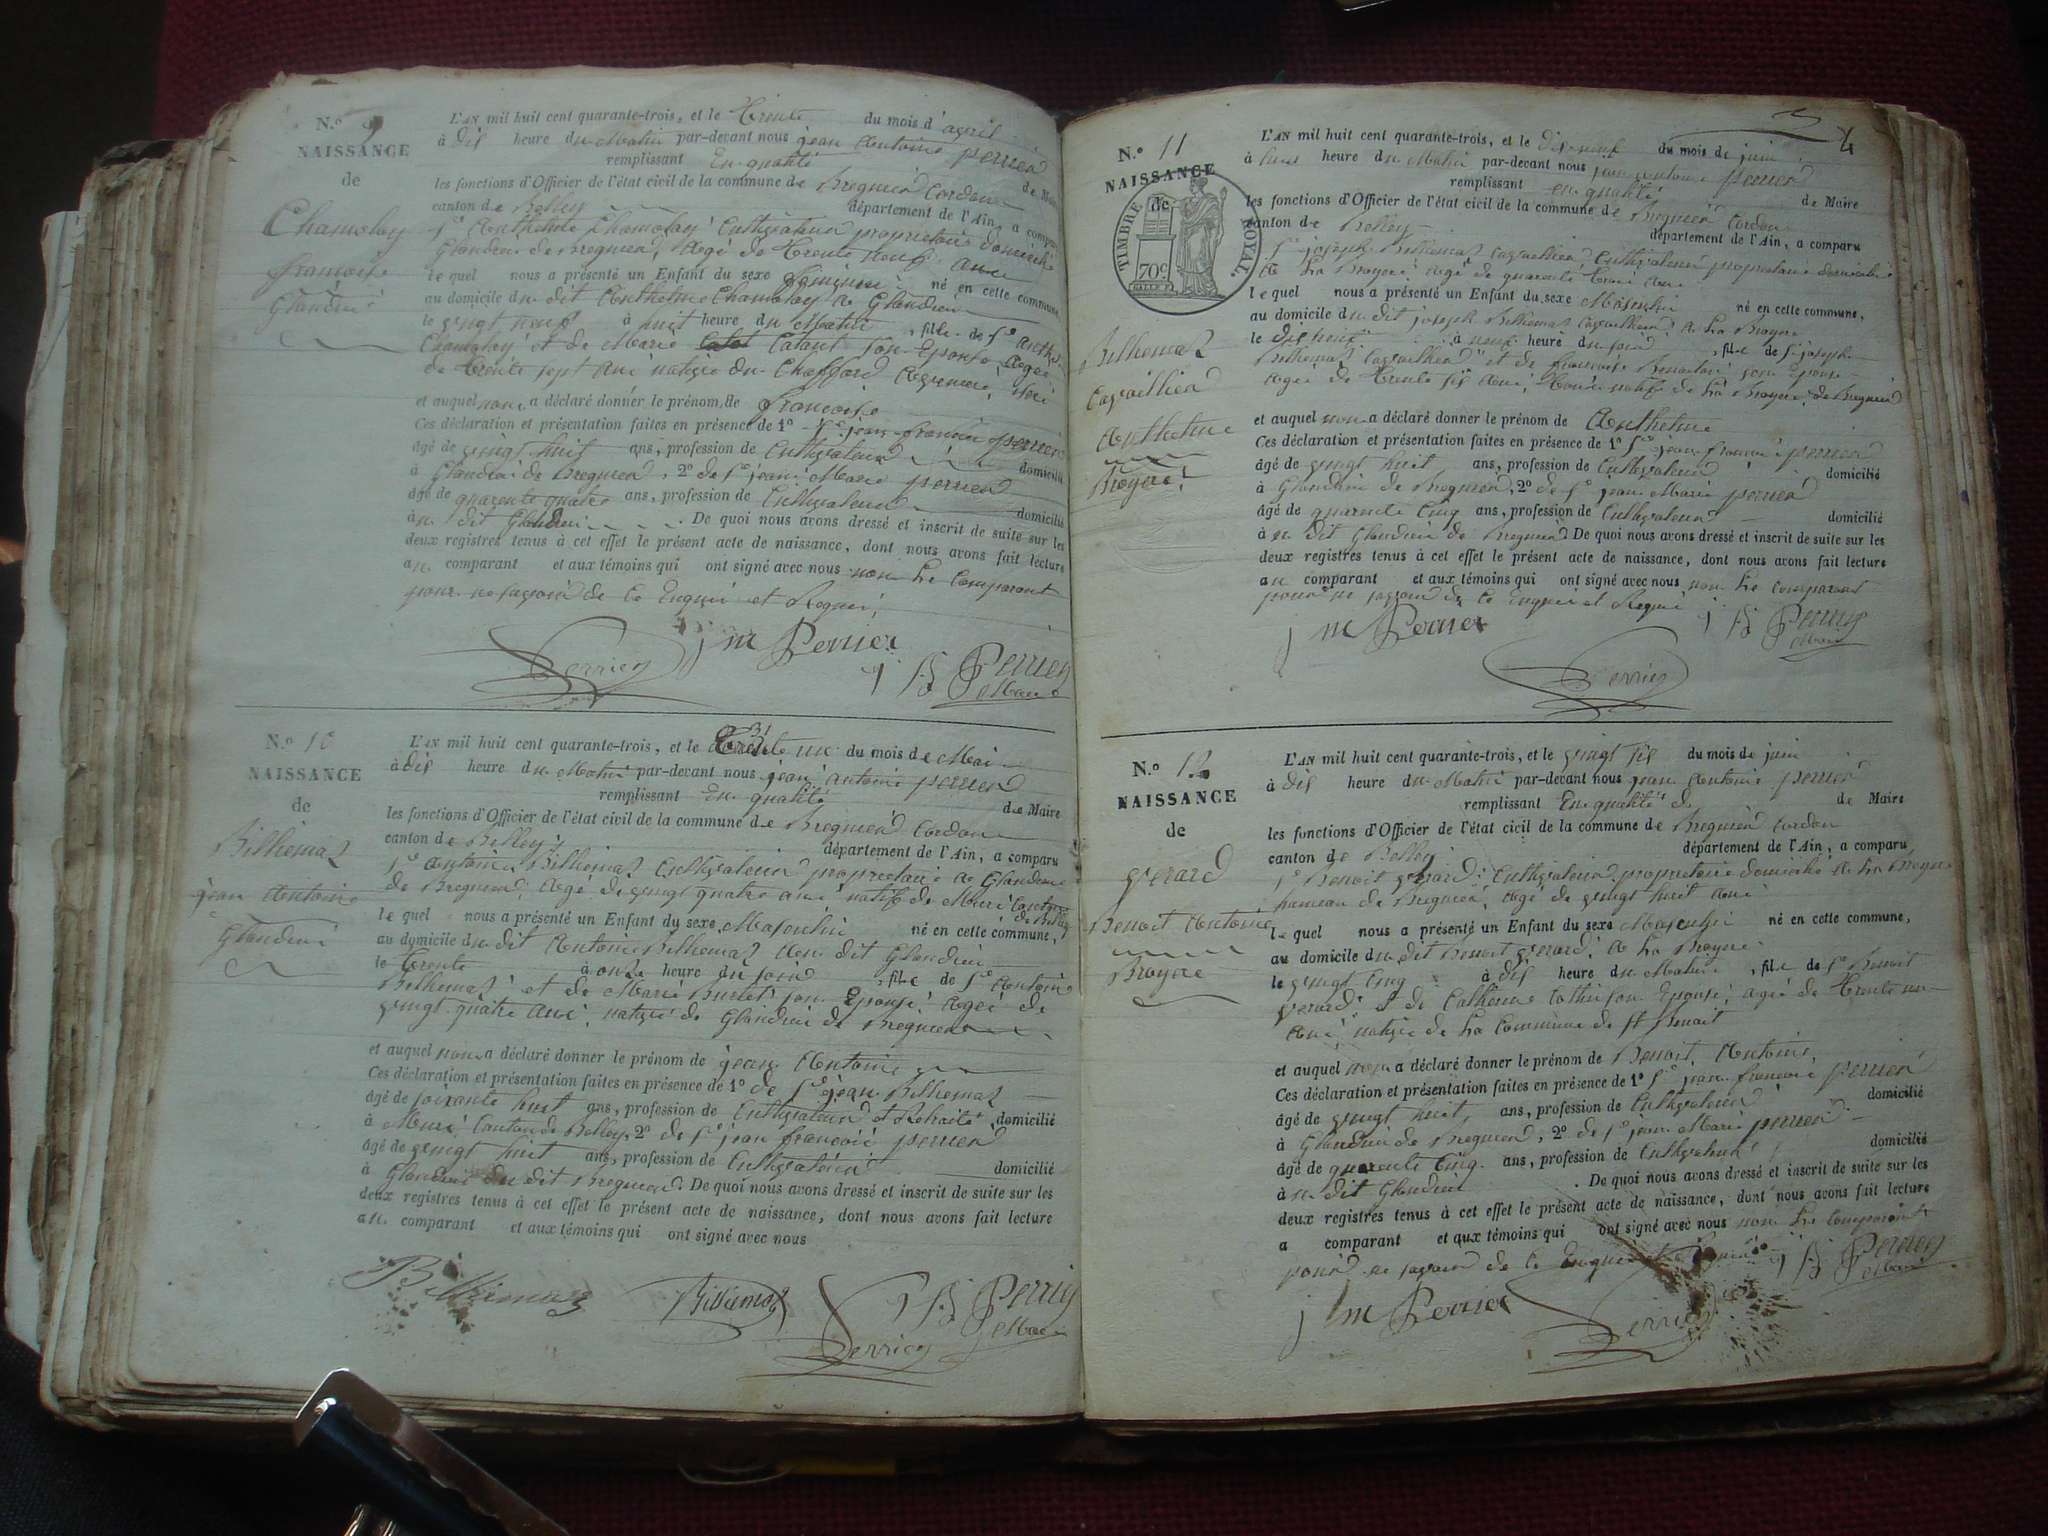 N.º 9
NAISSANCE
de
Chamolay
francoise
Glandieu
L'AN mil huit cent quarante-trois, et le Trente du mois d'avril
à dix heure du Matin par-devant nous jean Antoine perrier
remplissant En qualité de Maire
les fonctions d'Officier de l'état civil de la commune de Bregnier Cordon
canton de Belley département de l'Ain, a comparu
Sr Anthelme Chamolay Cultivateur propriétaire domicilié
Glandieu de Bregnier, Agé de Trente neuf ans
le quel nous a présenté un Enfant du sexe féminin né en cette commune,
au domicile du dit Anthelme Chamolay a Glandieu
le vingt neuf à huit heure du Matin, fille de Sr Anthelme
Chamolay et de Marie Catant son Epouse Agée
de Trente sept ans native du
et auquel nous a déclaré donner le prénom de francoise
Ces déclaration et présentation faites en présence de 1º Sr jean francois perrier
âgé de vingt huit ans, profession de Cultivateur domicilié
à Glandieu de Bregnier, 2º de Sr jean Marie perrier
âgé de quarente quatre ans, profession de Cultivateur domicilié
au dit Glandieu. De quoi nous avons dressé et inscrit de suite sur les
deux registres tenus à cet effet le présent acte de naissance, dont nous avons fait lecture
au comparant et aux témoins qui ont signé avec nous non Le Comparant
pour ne savoir de ce Enquis et Requis.
j m Perrier
Perrier
j A Perrier
Maire
N.º 10
NAISSANCE
de
Billiemaz
jean Antoine
Glandieu
L'AN mil huit cent quarante-trois, et le Trente un 31 du mois de Mai
à dix heure du Matin par-devant nous jean antoine perrier
remplissant En qualité de Maire
les fonctions d'Officier de l'état civil de la commune de Bregnier Cordon
canton de Belley département de l'Ain, a comparu
Sr antoine Billiemaz Cultivateur propriétaire a Glandieu
de Bregnier, Agé de vingt quatre ans natif de Muri Canton
de Belley
le quel nous a présenté un Enfant du sexe Masculin né en cette commune,
au domicile du dit Antoine Billiemaz au dit Glandieu
le trente à onze heure du soir, fils de Sr Antoine
Billiemaz et de Marie Burlet son Epouse, Agée de
vingt quatre ans, native de Glandieu de Bregnier
et auquel nous a déclaré donner le prénom de jean Antoine
Ces déclaration et présentation faites en présence de 1º de Sr jean Billiemaz
âgé de soixante huit ans, profession de Cultivateur et Retraité domicilié
à Muri Canton de Belley, 2º de Sr jean francois perrier
âgé de vingt huit ans, profession de Cultivateur domicilié
à Glandieu du dit Bregnier. De quoi nous avons dressé et inscrit de suite sur les
deux registres tenus à cet effet le présent acte de naissance, dont nous avons fait lecture
au comparant et aux témoins qui ont signé avec nous
Billiemaz
Billiemaz
Perrier
j A Perrier
Maire
4
N.º 11
NAISSANCE
de
TIMBRE ROYAL.
70c
Billiemaz
Cavaillier
Anthelme
Broyere
L'AN mil huit cent quarante-trois, et le dix neuf du mois de juin
à heure du Matin par-devant nous jean antoine perrier
remplissant en qualité de Maire
les fonctions d'Officier de l'état civil de la commune de Bregnier Cordon
canton de Belley département de l'Ain, a comparu
Sr joseph Billiemaz Cavaillier Cultivateur propriétaire domicilié
a La Broyere agé de quarente trois ans
le quel nous a présenté un Enfant du sexe Masculin né en cette commune,
au domicile du dit joseph Billiemaz Cavaillier a La Broyere
le dix huit à neuf heure du soir, fils de Sr joseph
Billiemaz Cavaillier et de francoise son Epouse
Agée de Trente six ans, native de La Broyere, de Bregnier
et auquel nous a déclaré donner le prénom de Anthelme
Ces déclaration et présentation faites en présence de 1º Sr jean francois perrier
âgé de vingt huit ans, profession de Cultivateur domicilié
à Glandieu de Bregnier, 2º de Sr jean Marie perrier
âgé de quarente Cinq ans, profession de Cultivateur domicilié
au dit Glandieu de Bregnier De quoi nous avons dressé et inscrit de suite sur les
deux registres tenus à cet effet le présent acte de naissance, dont nous avons fait lecture
au comparant et aux témoins qui ont signé avec nous non Le comparant
pour ne savoir de ce Enquis et Requis
j m Perrier
j A Perrier
Maire
Perrier
N.º 12
NAISSANCE
de
Gerard
Benoit Antoine
Broyere
L'AN mil huit cent quarante-trois, et le vingt six du mois de juin
à dix heure du Matin par-devant nous jean Antoine perrier
remplissant En qualité de de Maire
les fonctions d'Officier de l'état civil de la commune de Bregnier Cordon
canton de Belley département de l'Ain, a comparu
Sr Benoit Gerard, Cultivateur propriétaire domicilié a La Broyere
hameau de Bregnier, Agé de vingt huit ans
le quel nous a présenté un Enfant du sexe Masculin né en cette commune,
au domicile du dit Benoit Gerard, a La Broyere
le vingt Cinq à dix heure du Matin, fils de Sr Benoit
Gerard et de Catherine son Epouse, agée de Trente un
ans, native de La Commune de St Benoit
et auquel nous a déclaré donner le prénom de Benoit Antoine
Ces déclaration et présentation faites en présence de 1º Sr jean francois perrier
âgé de vingt huit ans, profession de Cultivateur domicilié
à Glandieu de Bregnier, 2º de Sr jean Marie perrier
âgé de quarente Cinq ans, profession de Cultivateur domicilié
au dit Glandieu. De quoi nous avons dressé et inscrit de suite sur les
deux registres tenus à cet effet le présent acte de naissance, dont nous avons fait lecture
a comparant et aux témoins qui ont signé avec nous non Le Comparant
pour ne savoir de ce Enquis et Requis
j m Perrier
Perrier
j A Perrier
Maire